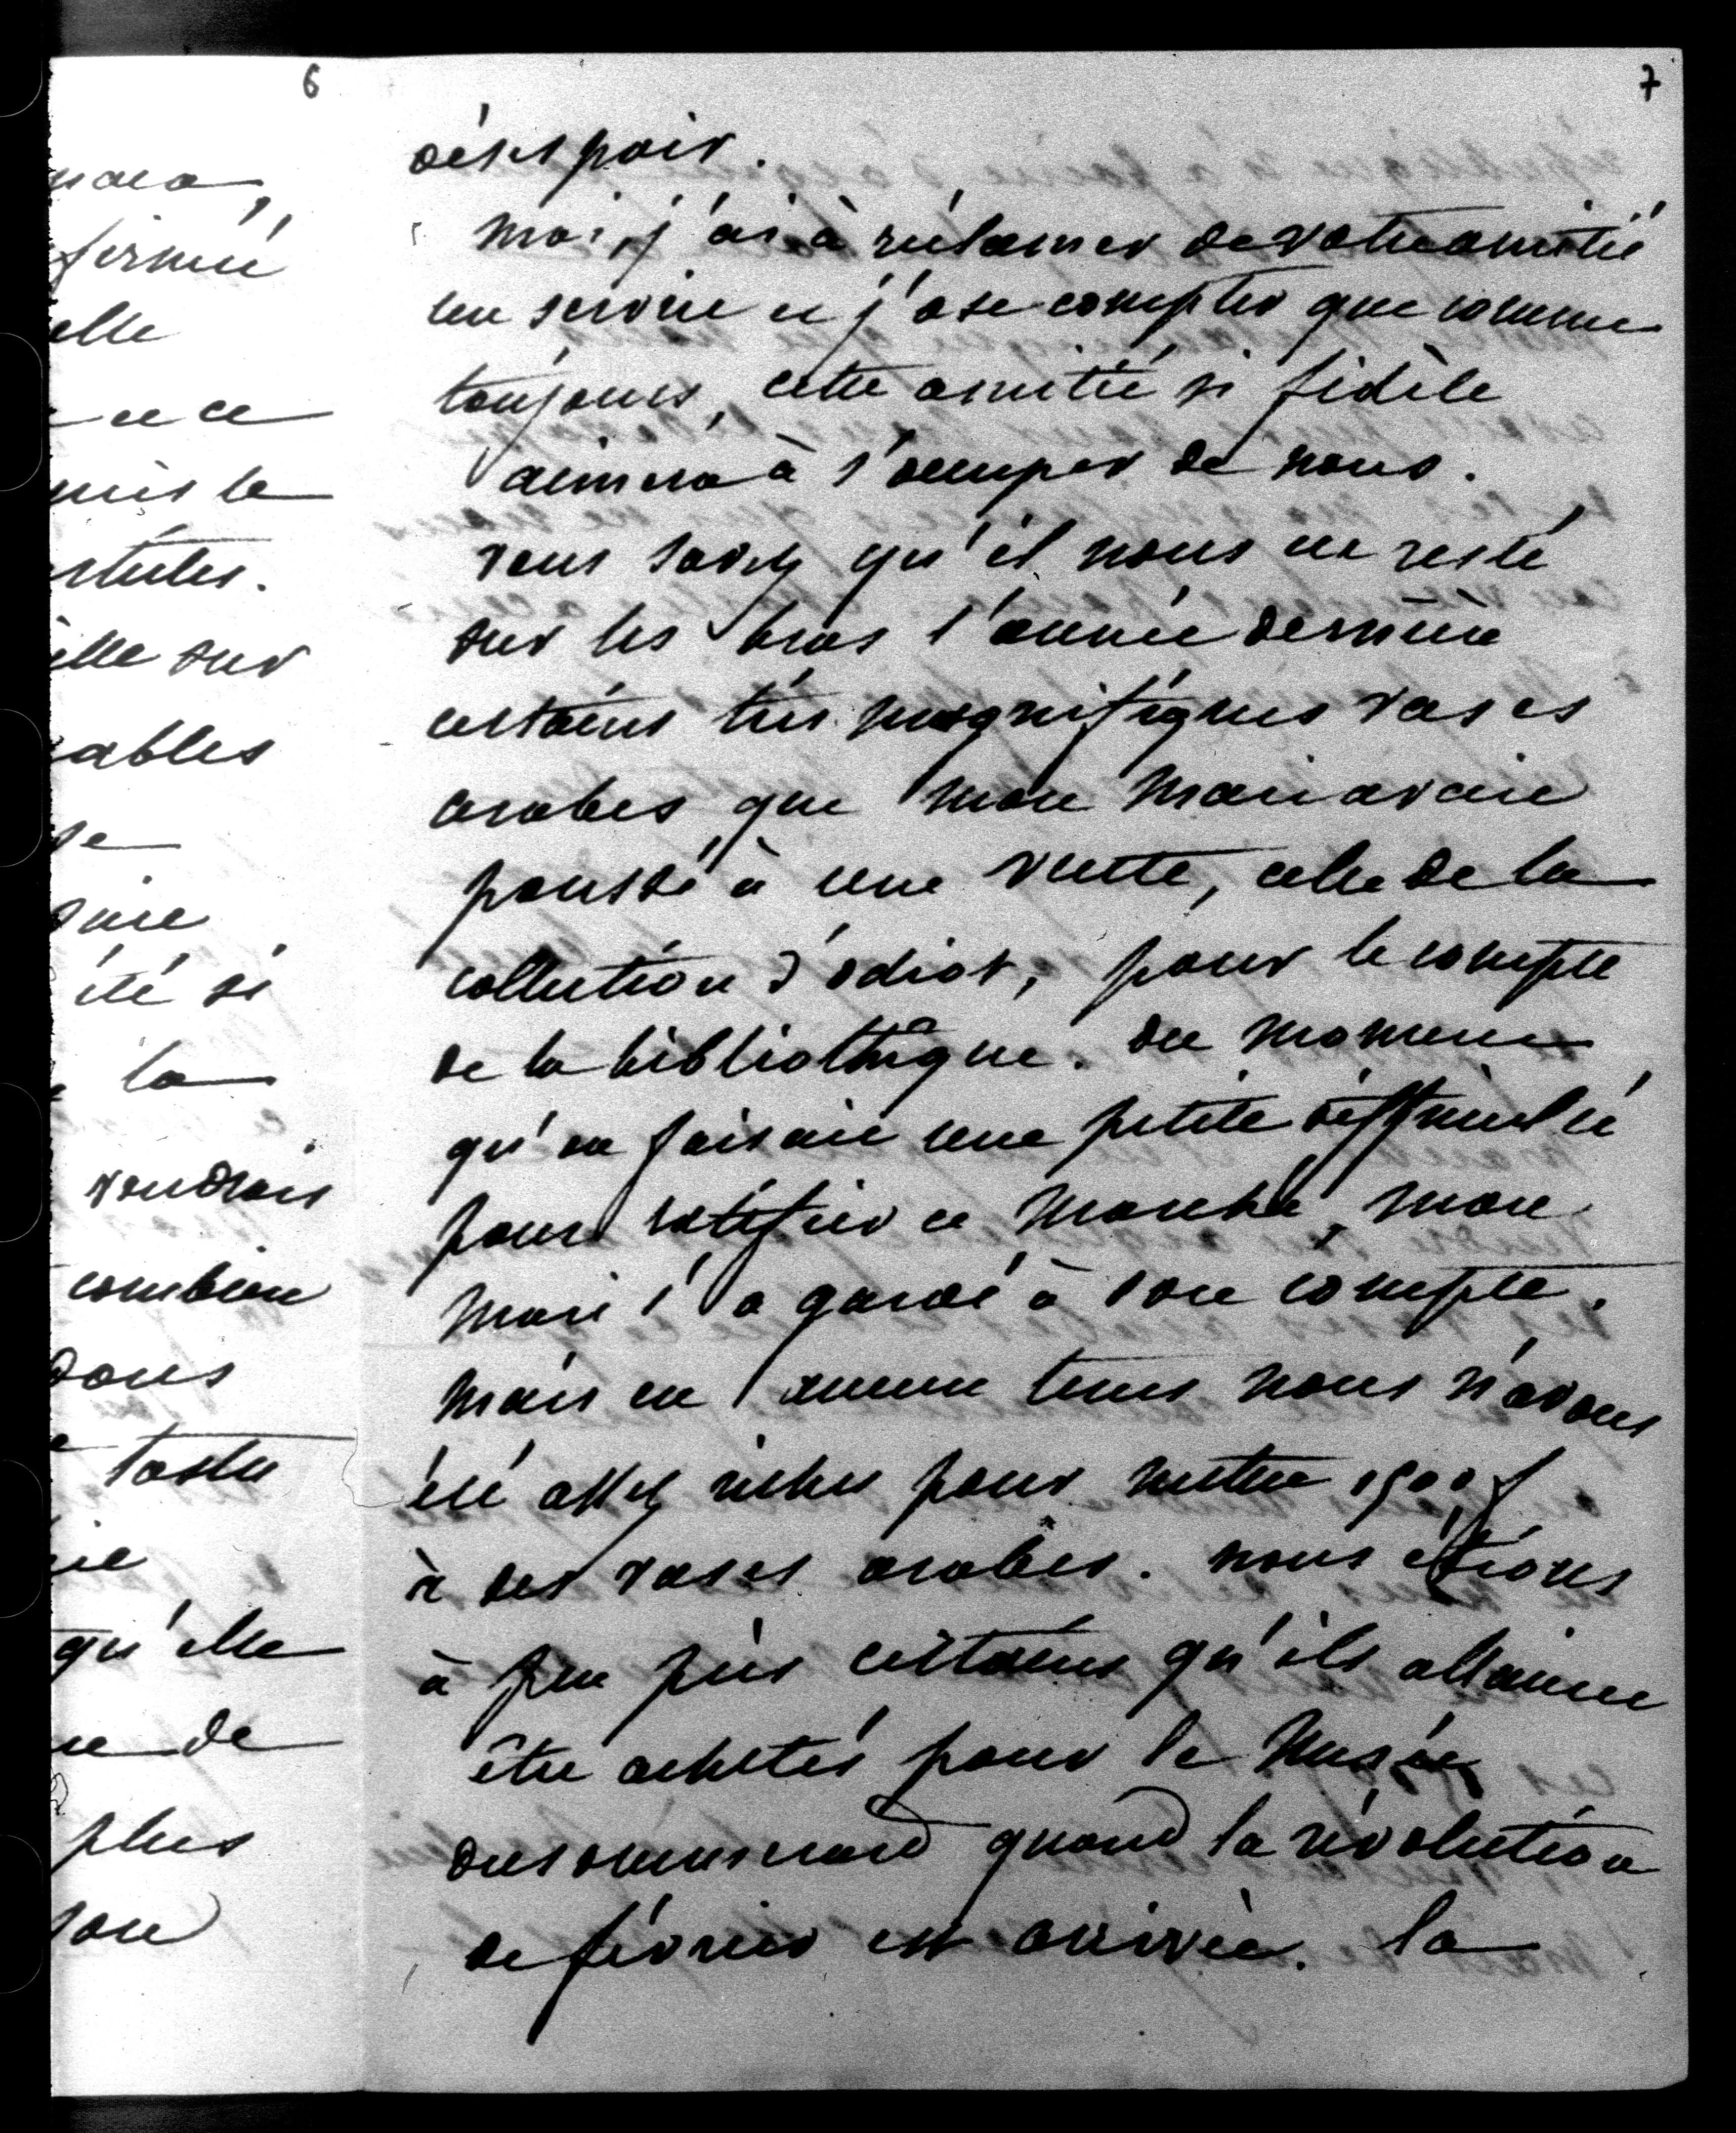 6
nara,
fermée
elle
ence
mis le
stules.
ille sur
ables
se
oire
été si
la
voudrais
combien
dans
tastu
ie
qu'elle
de
plus
son
7
désespoir.
moi, j'ai à réclamer de votre amitié
un service et j'ose compter que comme
toujours, cette amitié si fidèle
aimera à s'occuper de nous.
vous savez qu'il nous est resté
sur les bras l'année dernière
certains très magnifiques vases
arabes que mon mari avait
poussé à une vente, celle de la
collection d'odiot, pour le compte
de la bibliothèque. du moment
qu'on faisait une petite difficulté
pour ratifier ce marché, mon
mari l'a gardé à son compte.
mais en aucun tems nous n'avons
été assez riches pour mettre 1500 f
à des vases arabes. nous étions
à peu près certains qu'ils allaient
être achetés pour le Musée
dusommerard quand la révolution
de février est arrivée. la